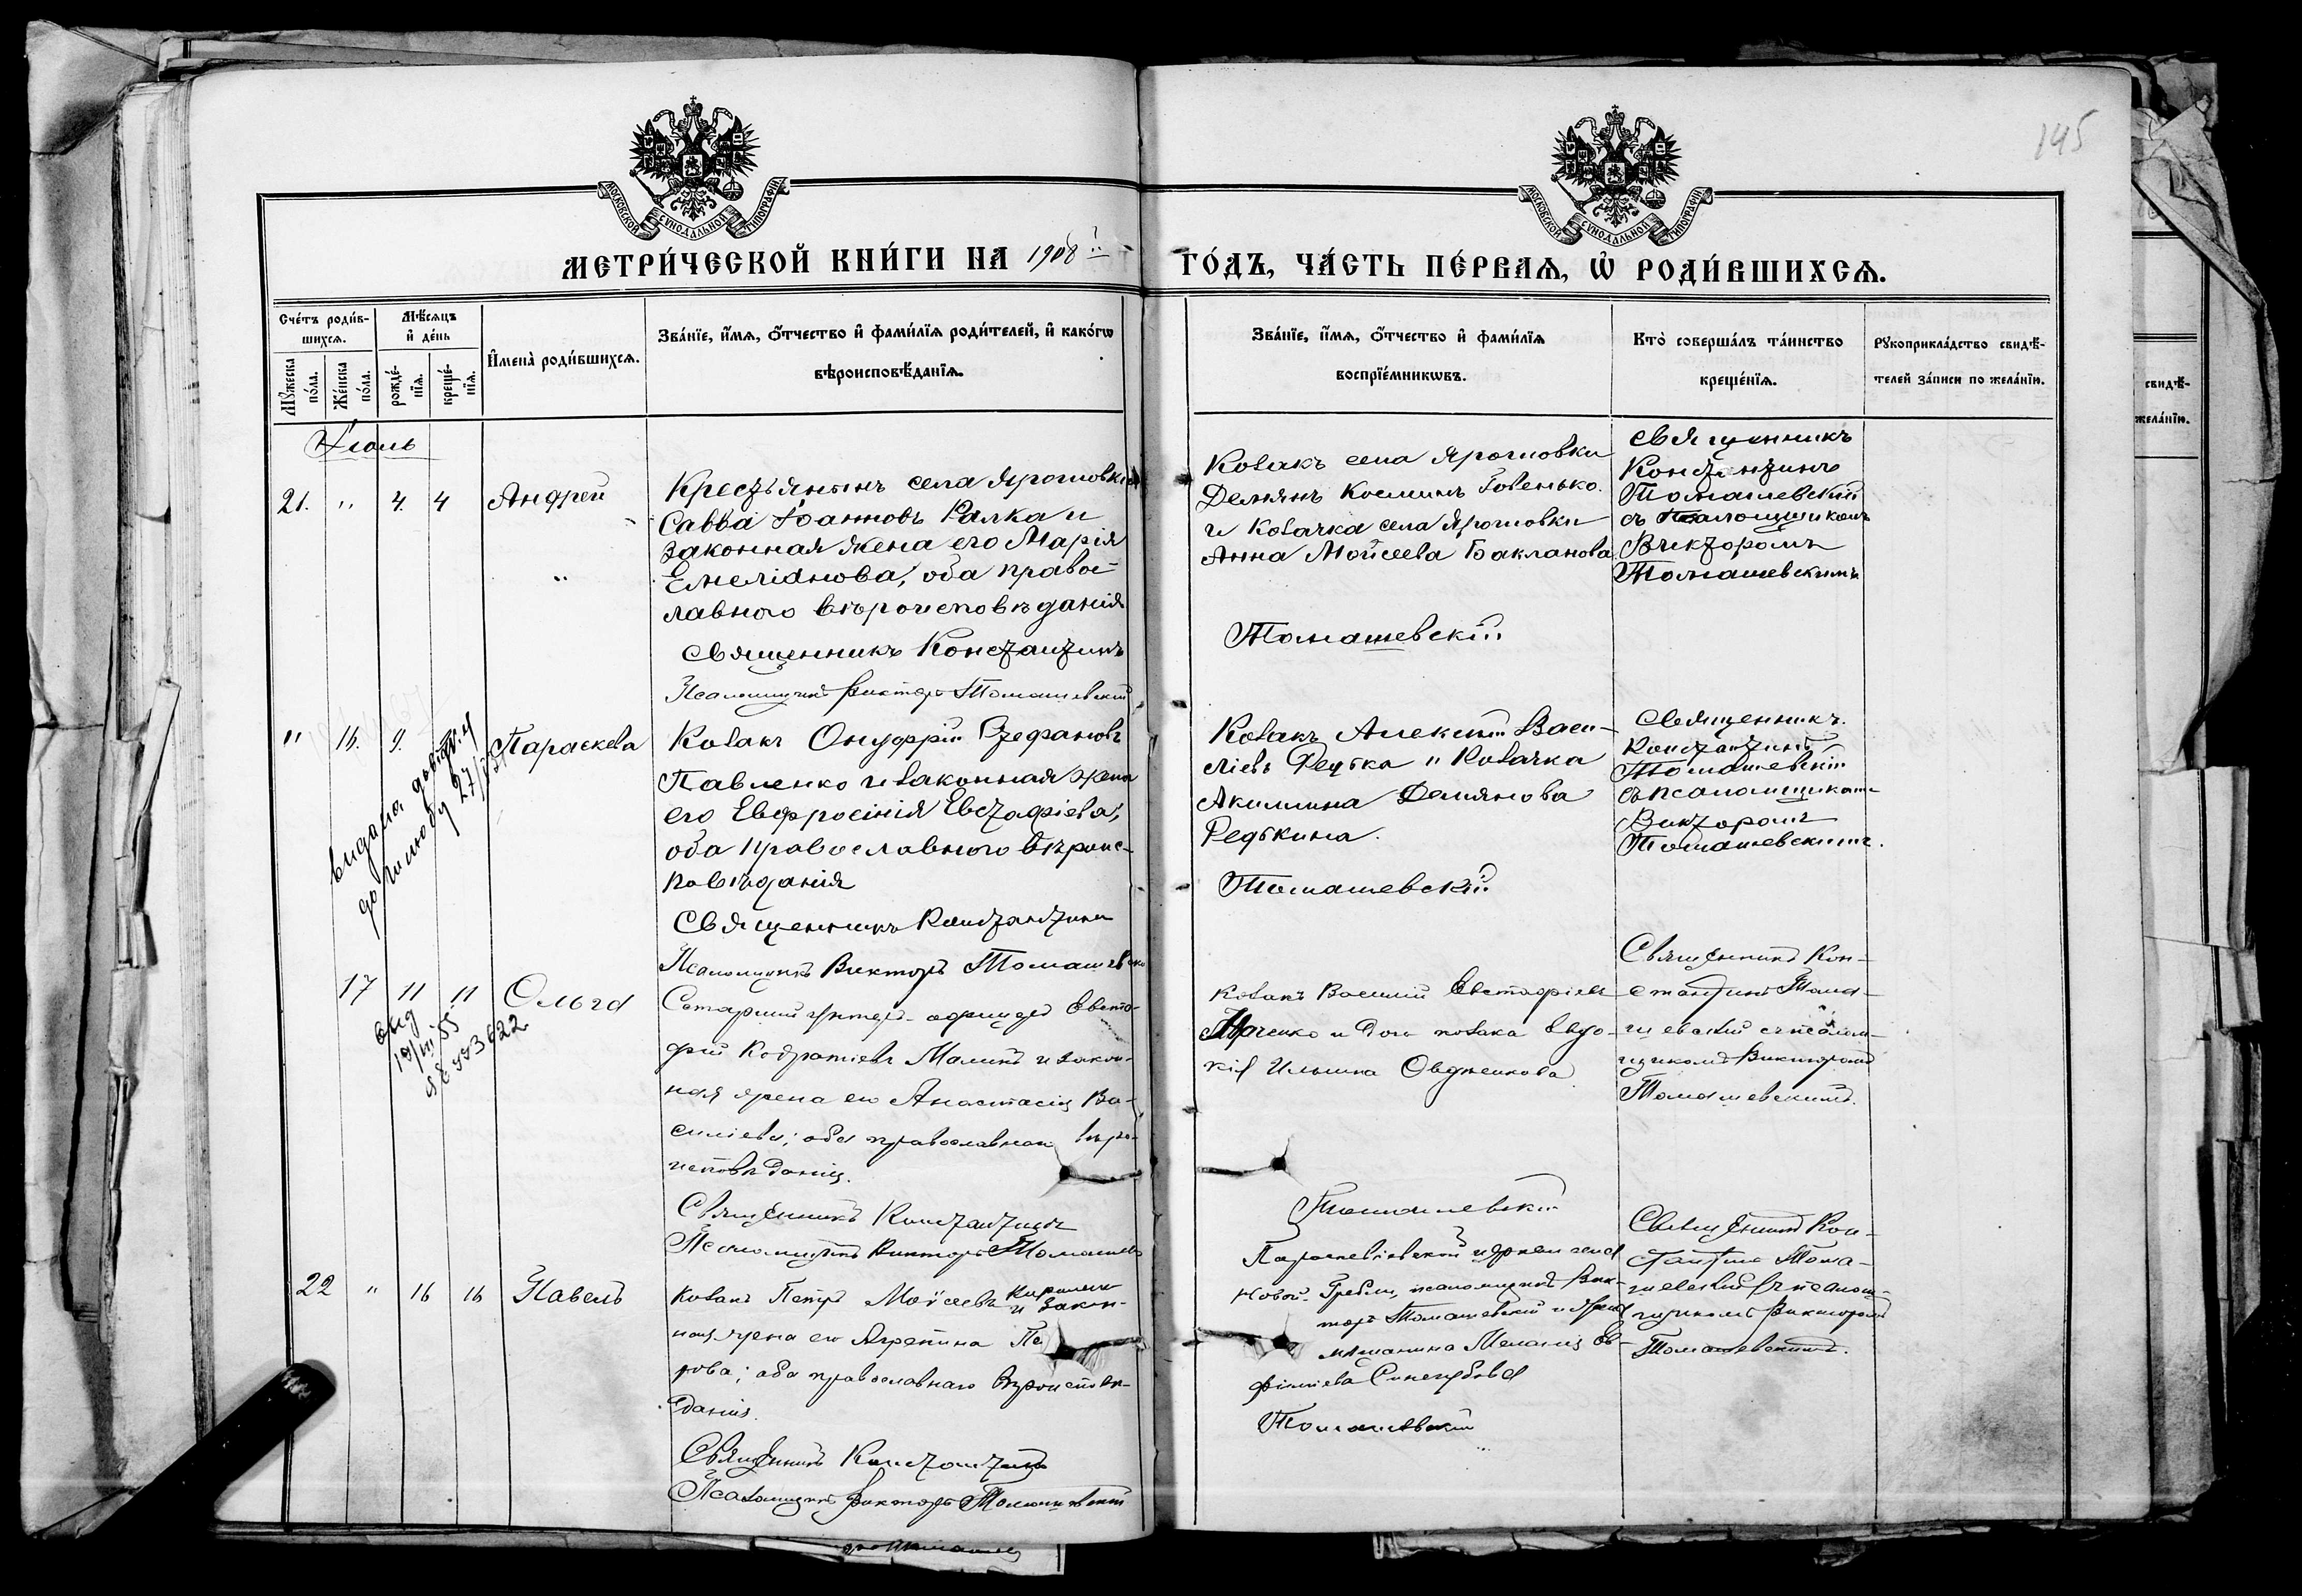 145
МОСКОВСКОЙ СѴНОДАЛЬНОЙ ТИПОГРАФІИ
МОСКОВСКОЙ СѴНОДАЛЬНОЙ ТИПОГРАФІИ
МЕТРИ́ЧЕСКОЙ КНИ́ГИ НА 1908 й ГО́ДЪ, ЧА́СТЬ ПЕ́РВАѦ, Ѽ РОДИ́ВШИХСѦ.
Сче́тъ роди́в-
шихсѧ.
Мꙋжеска по́ла.
Же́нска по́ла.
Мѣ́сѧцъ
и҆ де́нь
рожде́-
нїѧ.
креще́-
нїѧ.
И҆мена̀ роди́вшихсѧ.
Зва́нїе, и҆́мѧ, ѻ҆́тчество и҆ фами́лїѧ роди́телей, и҆ како́гѡ
вѣроисповѣ́данїѧ.
Зва́нїе, и҆́мѧ, ѻ҆́тчество и҆ фами́лїѧ
воспрїе́мникѡвъ.
Кто̀ соверша́лъ та́инство
креще́нїѧ.
Рꙋкоприкла́дство свидѣ́-
телей за́писи по жела́нїю.
свидѣ́-
жела́нїю.
Іюль
21. " 4. 4 Андрей
Крестьянинъ села Ярошовки
Савва Іоанновъ Калка и
законная жена его Марія
Емеліанова, оба правос-
лавного вѣроисповѣданія
Священникъ Константинъ
Псаломщикъ Викторъ Томашевскій
Козакъ села Ярошовки
Демянъ Косминъ Говенько.
и Козачка села Ярошовки
Анна Мойсеева Бакланова
Томашевскій
Священникъ
Константинъ
Томашевскій
съ псаломщикомъ
Викторомъ
Томашевскимъ
" 16. 9. Параскева
видана довідка
Козакъ Онуфрій Стефановъ
Павленко и законная жена
его Евфросинія Евстафіева,
оба православного вѣроис-
повѣданія
Священникъ Константинъ
Псаломщикъ Викторъ Томашевскій
Козакъ Алексій Васи-
ліевъ Редька и Козачка
Акилина Демянова
Редькина.
Томашевскій
Священникъ
Константинъ
Томашевскій
съ псаломщикомъ
Викторомъ
Томашевскимъ.
17 11 11 Ольга
Старшій унтеръ-офицеръ Евста-
фій Кодратіевъ Маликъ и закон-
ная жена его Анастасія Ва-
силіева; оба православнаго вѣро-
исповѣданія.
Священникъ Константинъ
Псаломщикъ Викторъ Томашевскій
козакъ Василій Евстафіевъ
и дочь козака Евдо-
кія Ильина
Томашевскій
Священникъ Кон-
стантинъ Тома-
шевскій съ псалом-
щикомъ Викторомъ
Томашевскимъ.
22 " 16 16 Павелъ
козакъ Петръ Моѵсеевъ
и закон-
ная жена его Агрепина Пе
рова; оба православнаго вѣроисповѣ-
данія.
Священникъ Константинъ
Псаломщикъ Викторъ Томашевскій
церкви села
Новой-Гребли, псаломщикъ Вик-
торъ Томашевскій и
Меланія Ев-
фиміева Синегубова
Томашевскій
Священникъ Кон-
стантинъ Тома-
шевскій съ псалом-
щикомъ Викторомъ
Томашевскимъ.